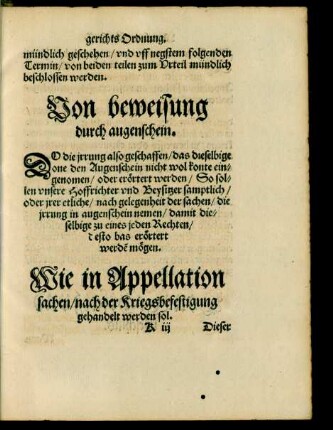 gerichts Ordnung.
mündlich geschehen/ vnd vff negstem folgenden
Termin/ von beiden teilen zum Vrteil mündlich
beschlossen werden.
Von beweisung
durch augenschein.
DO die jrrung also geschaffen/ das dieselbige
one den Augenschein nicht wol konte ein-
genomen/ oder erörtert werden/ So sol-
len vnsere Hoffrichter vnd Beysitzer samptlich/
oder jrer etliche/ nach gelegenheit der sachen/ die
jrrung in augenschein nemen/ damit die-
selbige zu eines jeden Rechten/
desto bas erörtert
werdē mögen.
Wie in Appellation
sachen/ nach der Kriegsbefestigung
gehandelt werden sol.
K iij Dieser